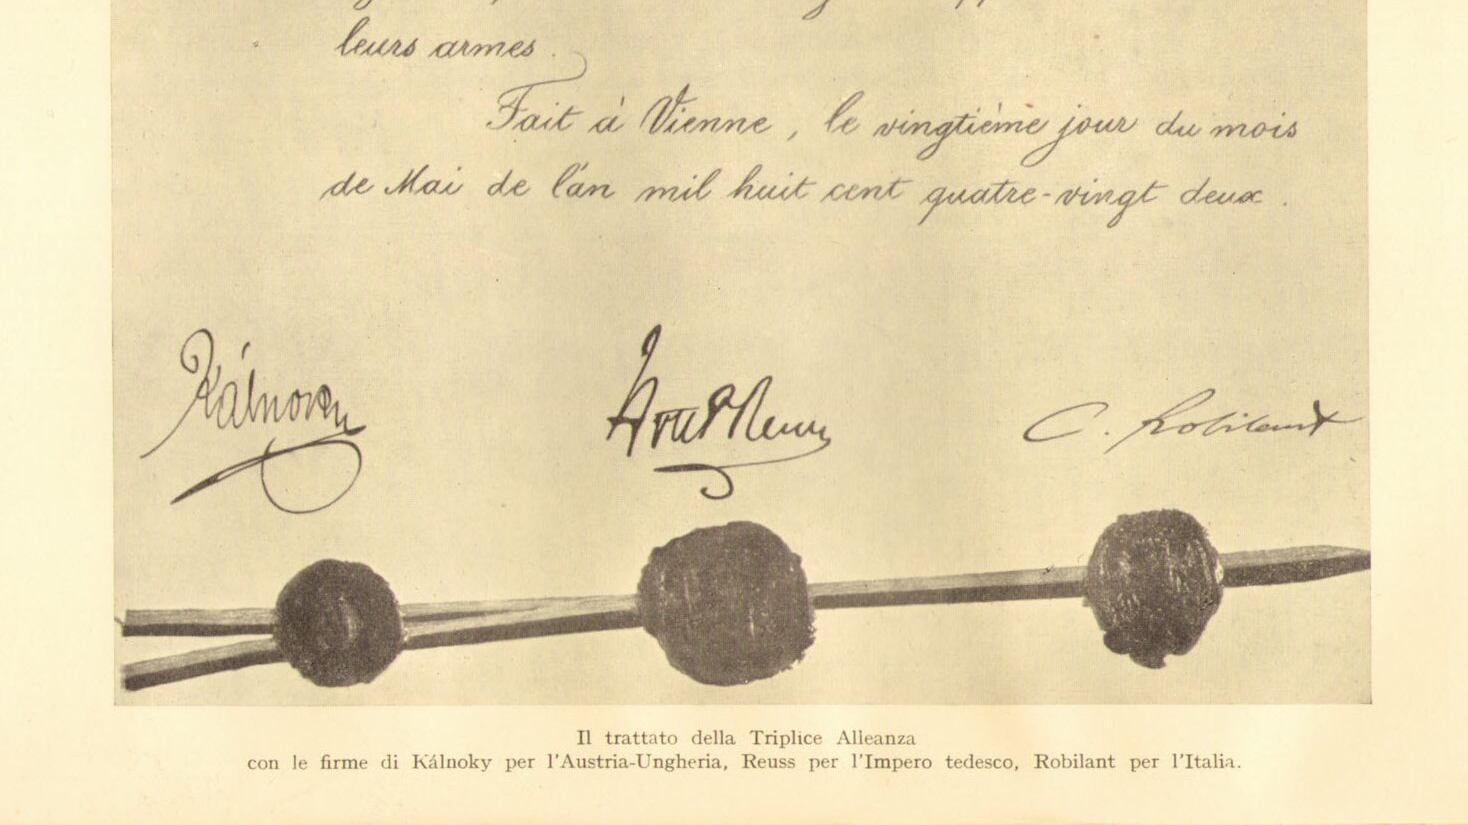 leurs armes.
Fait à Vienne, le vingtième jour du mois
de Mai de l'an mil huit cent quatre-vingt deux.
Kálnoky
C. Robilant
Il trattato della Triplice Alleanza
con le firme di Kálnoky per l'Austria-Ungheria, Reuss per l'Impero tedesco, Robilant per l'Italia.